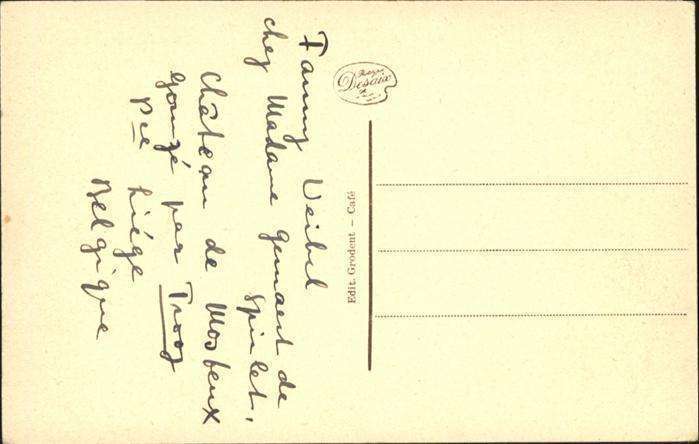 Fanny Veibel
chez Madame Gemaert de
Spirlet,
Château de Mosbeux
gomzé par Trooz
Pce Liége
Belgique
Edit. Grodent — Café
Desaix